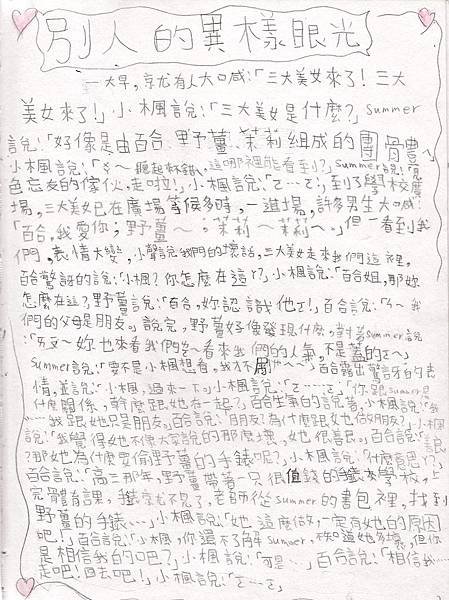 別人的異樣眼光
一大早,就有人大喊:「三大美女來了!三大
美女來了!」小楓說:「三大美女是什麼?」summer
說:「好像是由百合、野薑、茉莉組成的團體。」
小楓說:「ㄜ~聽起來不錯,這哪裡能看到?」summer說:「見
色忘友的傢伙,走啦!」小楓說:「ㄛ…ㄛ」到了學校廣
場,三大美女已在廣場等候多時,一進場,許多男生大喊:
「百合,我愛你;野薑~。茉莉~茉莉~。」但一看到我
們,表情大變,小聲說我們的壞話,三大美女走來我們這裡,
百合驚訝的說:「小楓?你怎麼在這ㄚ?」小楓說:「百合姐,那妳
怎麼在這?」野薑說:「百合,妳認識他ㄛ!」百合說:「ㄣ~我
們的父母是朋友。」說完,野薑好像發現什麼,對著summer說
:「ㄞㄡ~妳也來看我們ㄛ~看來我們的人氣,不是蓋的ㄛ~」
summer說:「要不是小楓想看,我才不屑~~」百合露出驚訝的表
情,並說:「小楓,過來一下。」小楓說:「ㄛ…ㄛ。」「你跟summer是
什麼關係,幹麼跟她在一起?」百合生氣的說著,小楓說:「我
…我跟她只是朋友。」百合說:「朋友?為什麼跟她做朋友?」小楓
說:「我覺得她不像大家說的那麼壞,她很善良。」百合說:「善良
?那她為什麼要偷野薑的手錶呢?」小楓說:「什麼意思ㄚ?」
百合說:「高三那年,野薑帶著一只很值錢的手錶來學校,上
完體育課,錶就不見了,老師從summer的書包裡,找到
野薑的手錶…」小楓說:「她這麼做,一定有她的原因
吧!」百合說:「小楓,你還不了解summer,不知道她多壞,但你
是相信我的吧?」小楓說:「可是…」百合說:「相信我……
走吧!回去吧!」小楓說:「ㄛ…ㄛ」